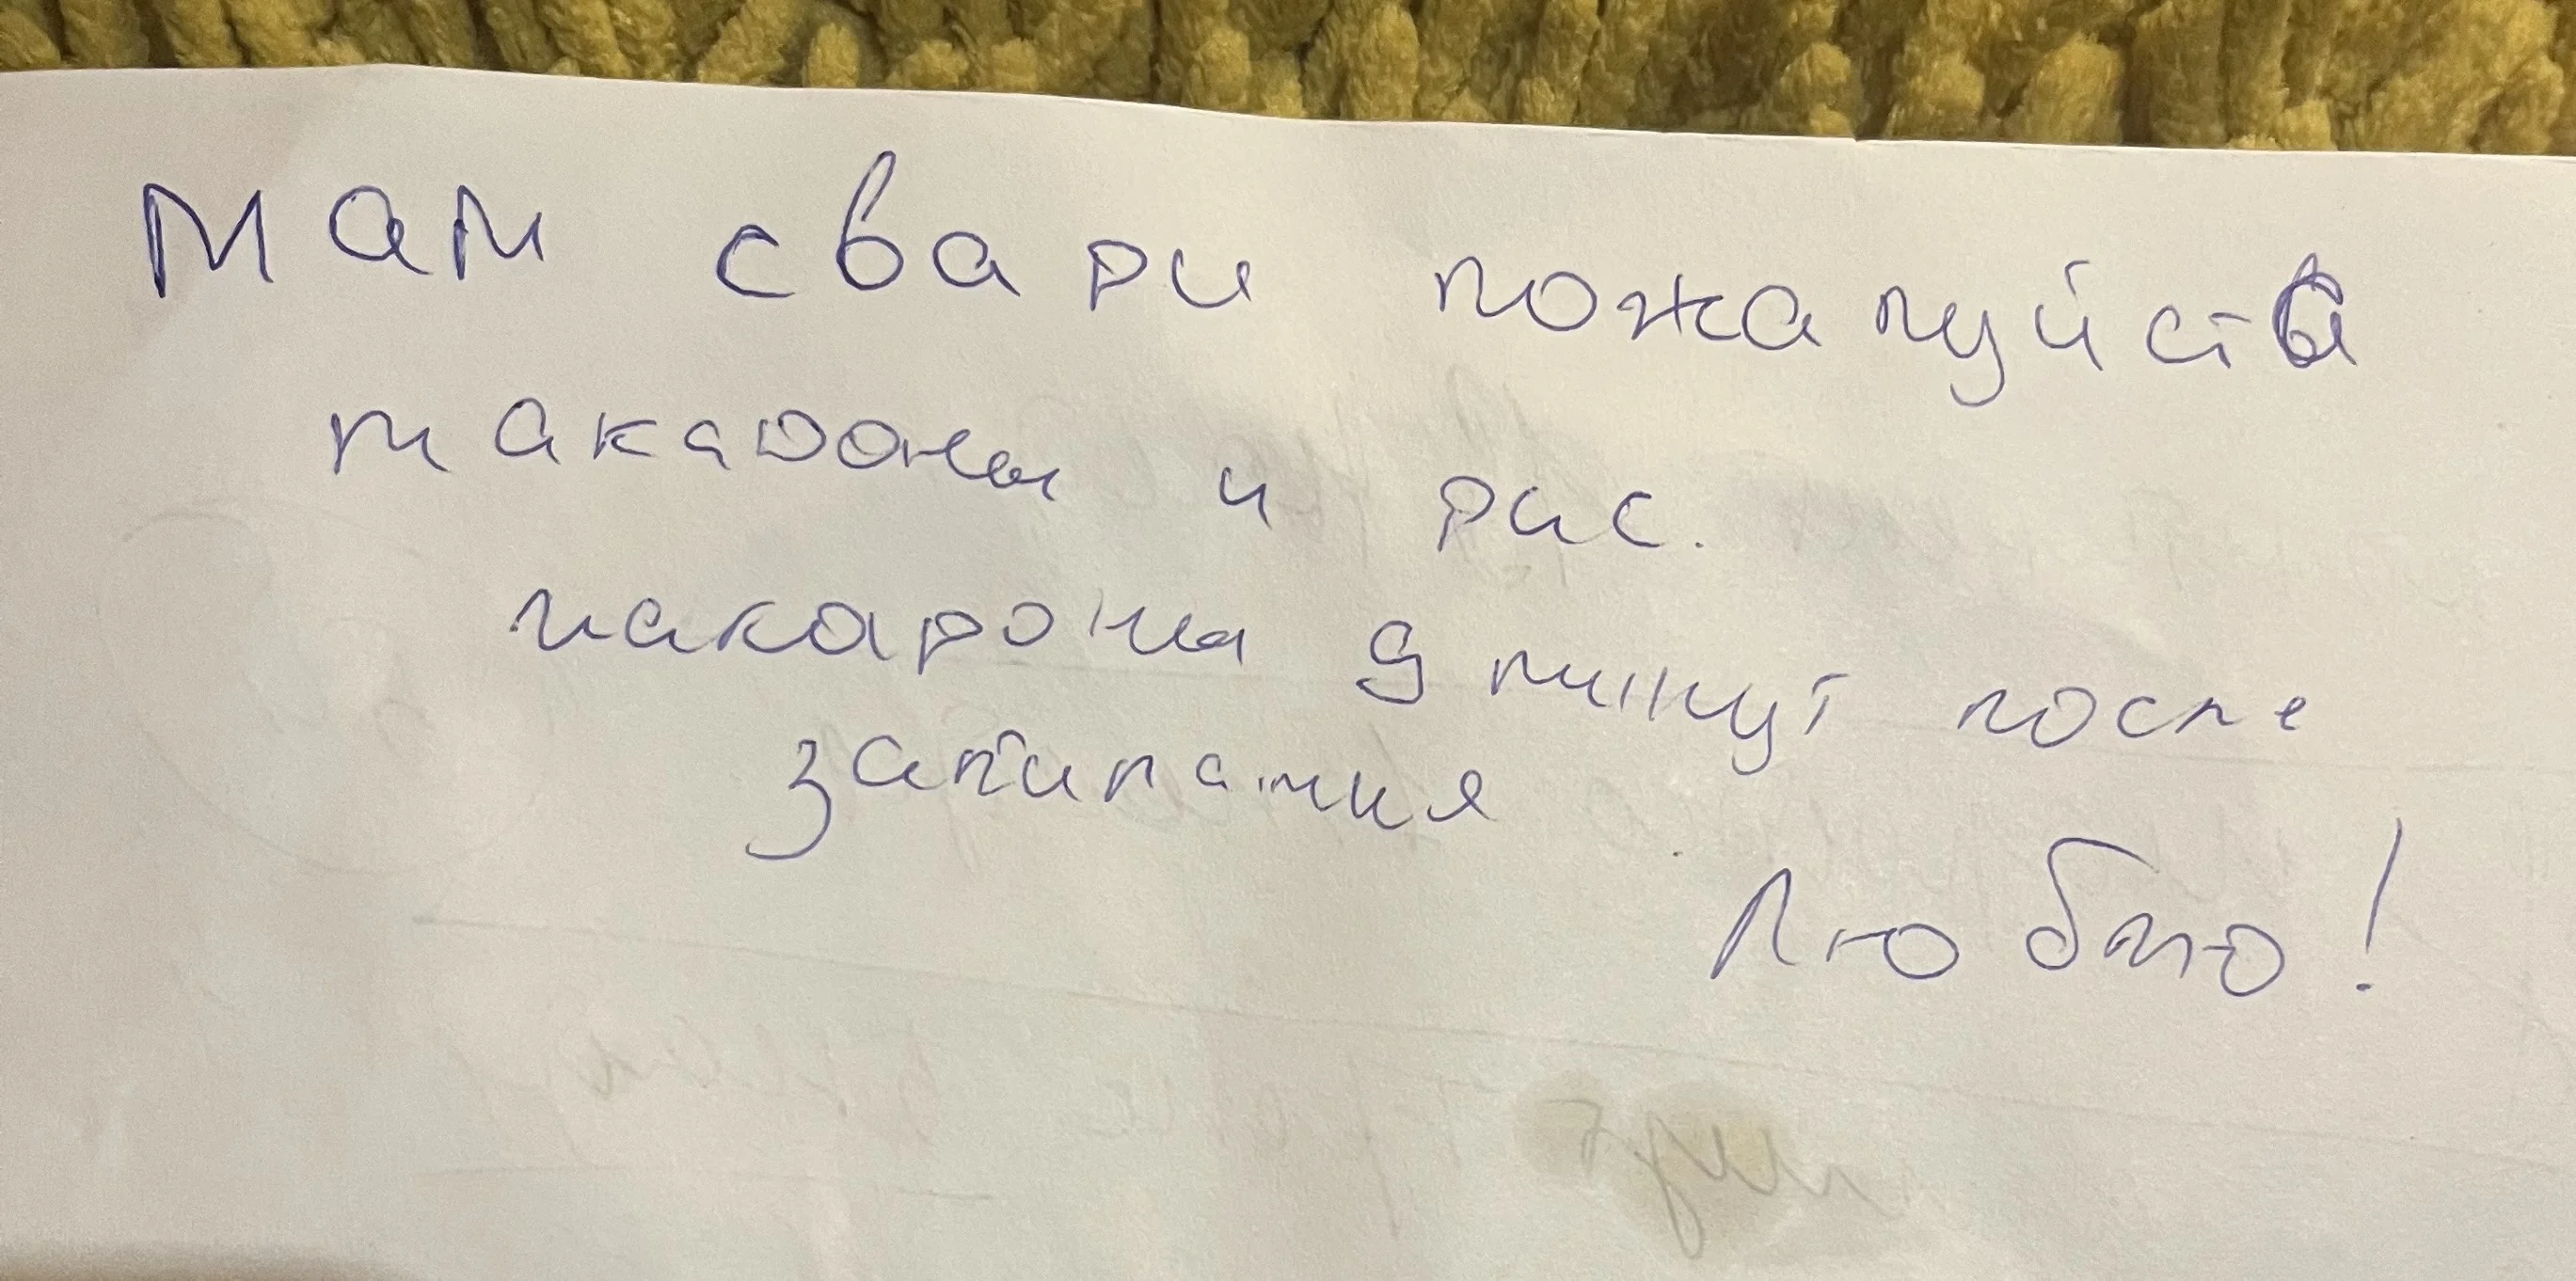 Мам свари пожалуйста
макароны и рис.
макароны 9 минут после
закипания
Люблю!